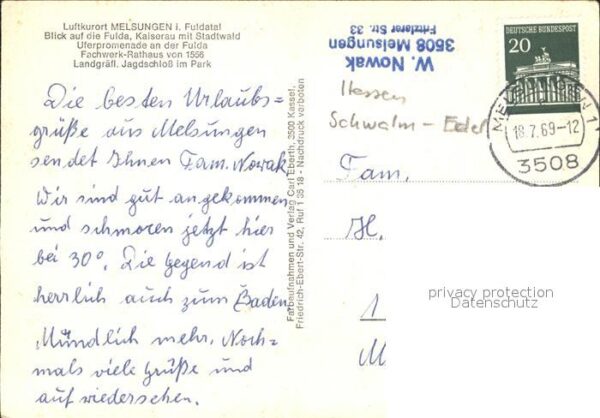 Luftkurort MELSUNGEN i. Fuldatal
Blick auf die Fulda, Kaiserau mit Stadtwald
Uferpromenade an der Fulda
Fachwerk-Rathaus von 1556
Landgräfl. Jagdschloß im Park
Die besten Urlaubs=
grüße aus Melsungen
sendet Ihnen Fam. Nowak
Wir sind gut angekommen
und schmoren jetzt hier
bei 30°. Die Gegend ist
herrlich auch zum Baden
Mündlich mehr. Noch-
mals viele Grüße und
auf wiedersehen.
Farbaufnahmen und Verlag Carl Eberth, 3500 Kassel,
Friedrich-Ebert-Str. 42, Ruf 1 36 18 - Nachdruck verboten
W. Nowak
3508 Melsungen
Fritzlarer Str. 33
Hessen
Schwalm - Eder
20
DEUTSCHE BUNDESPOST
MELSUNGEN 1
18.7.69-12
3508
Fam.
H.
1
M
privacy protection
Datenschutz